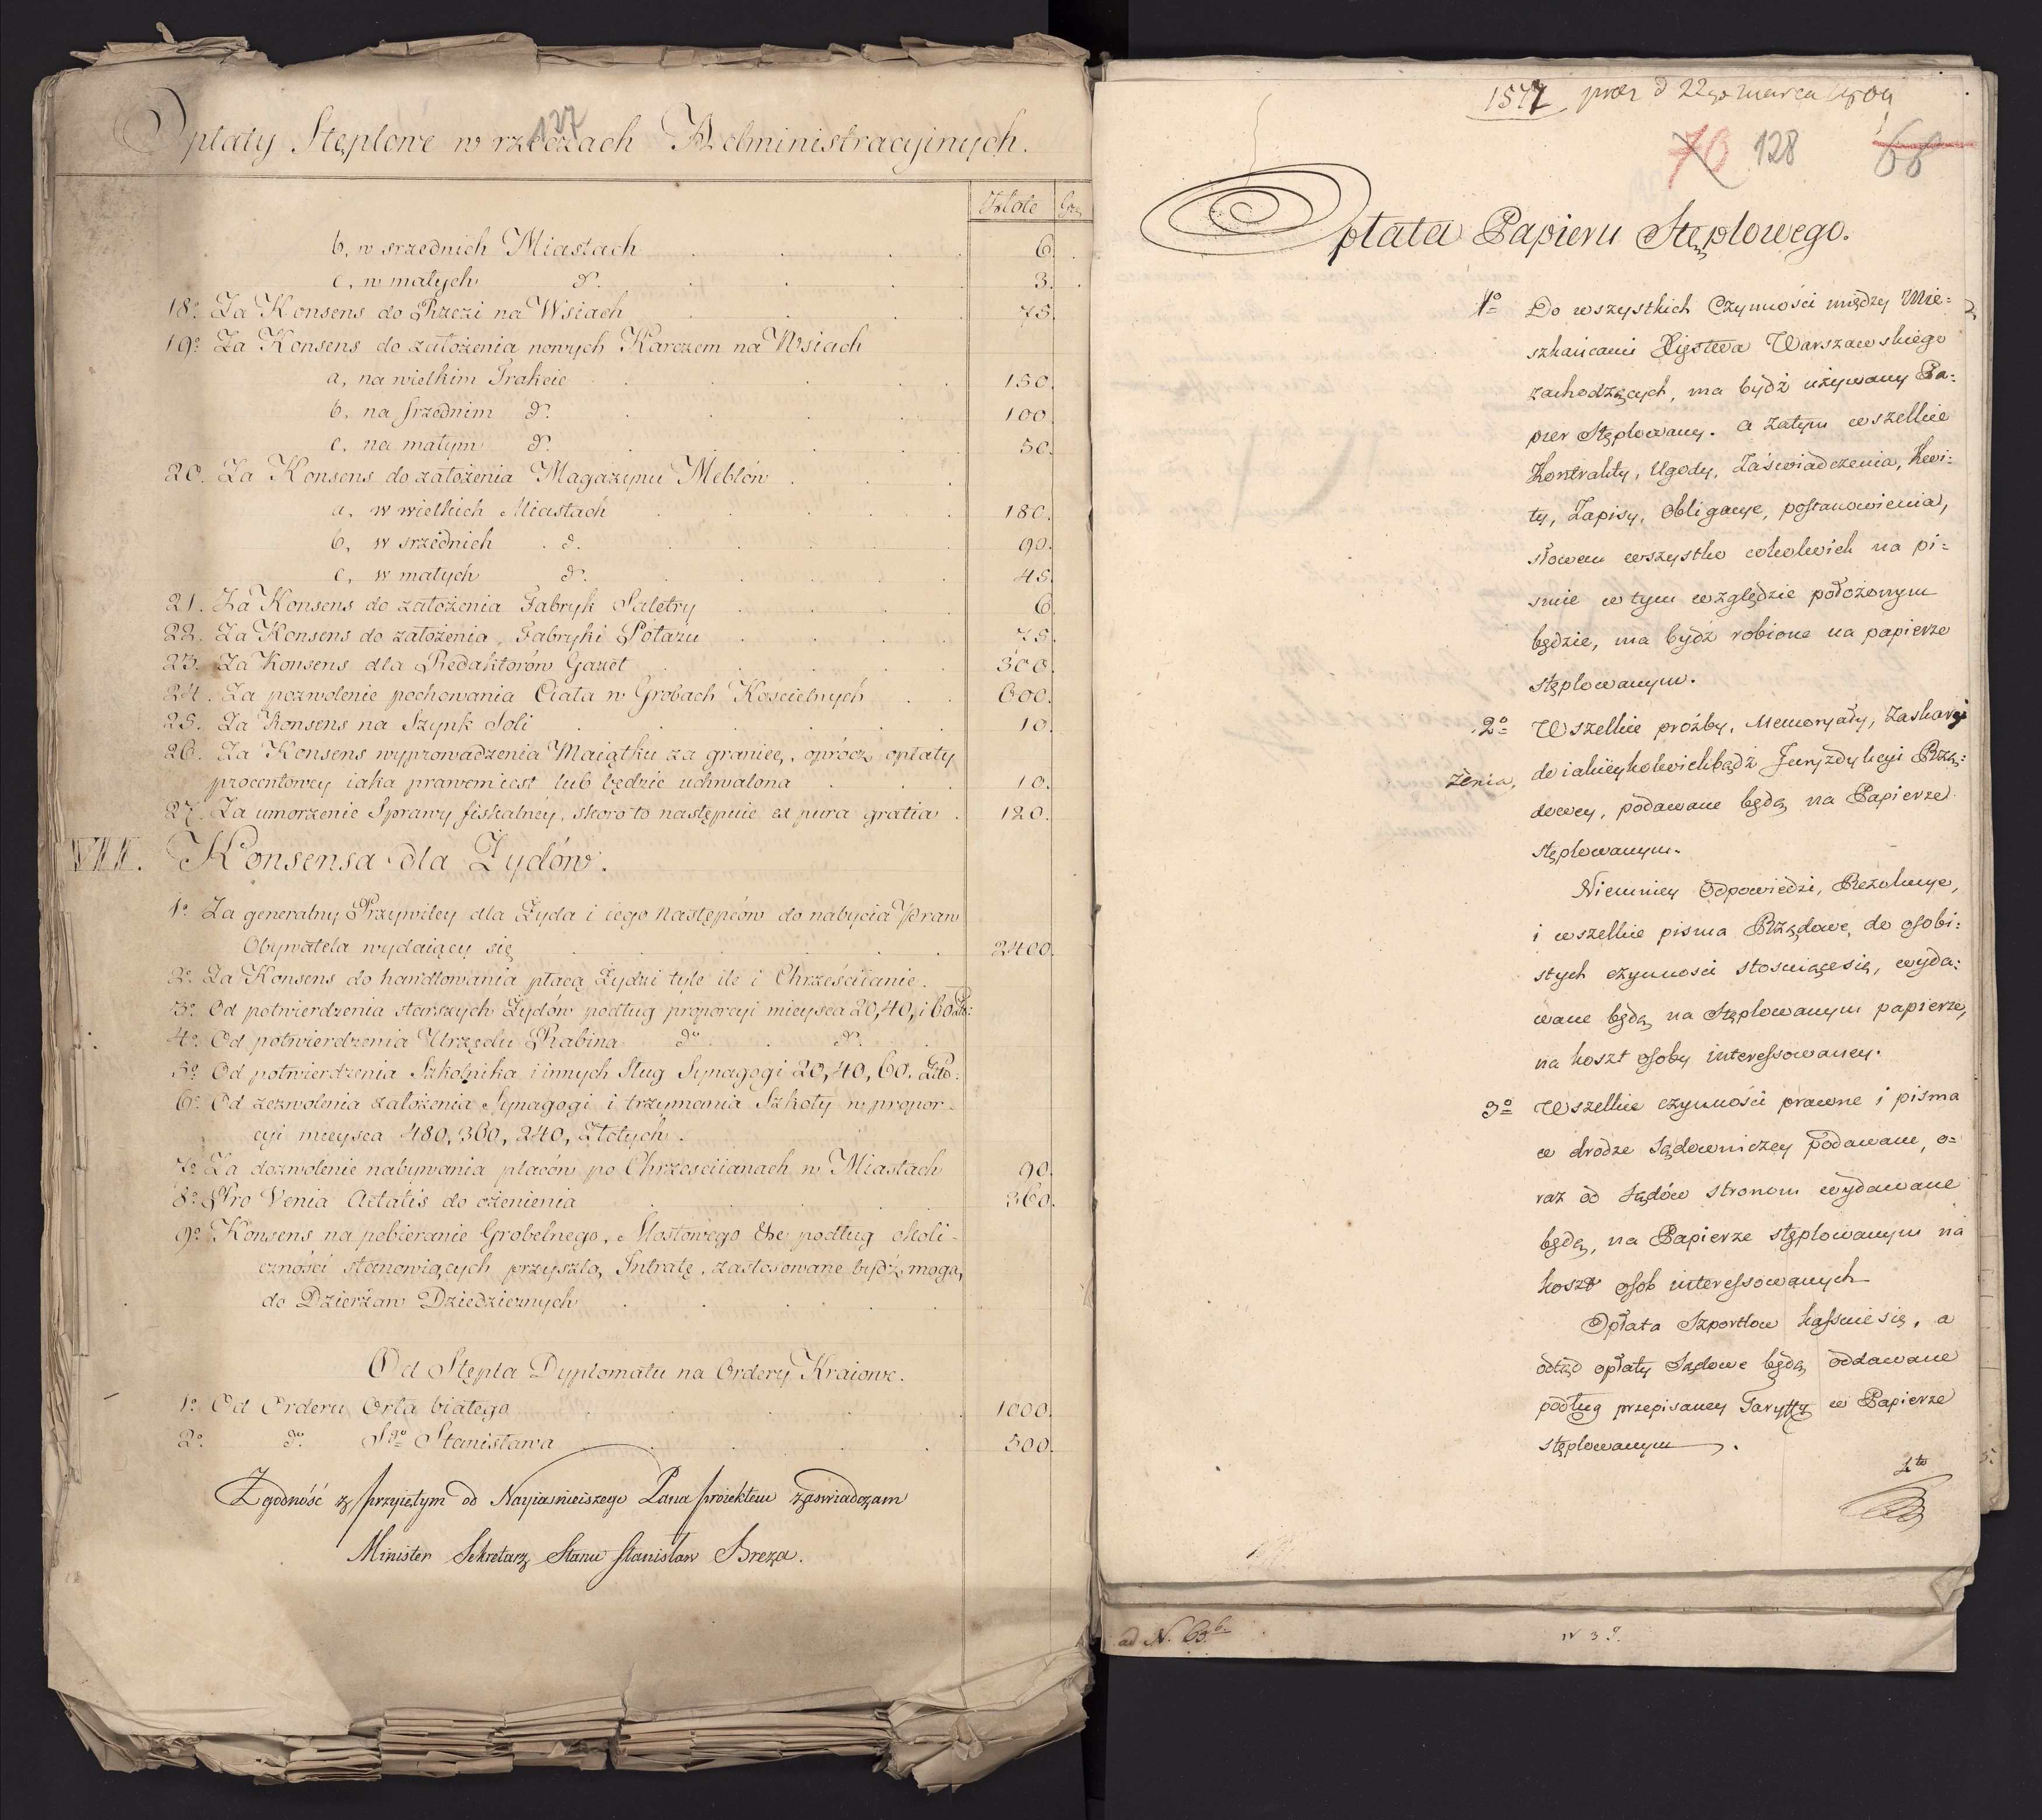 127
Opłaty Stęplowe w rzeczach Administracyinych.
Złote Gr.
b, w srzednich Miastach 6.
c, w małych do. 3.
18o Za Konsens do Rzezi na Wsiach 75.
19o Za Konsens do założenia nowych Karczem na Wsiach
a, na wielkim Trakcie 150.
b, na srzednim do. 100.
c, na małym do. 50.
20. Za Konsens do założenia Magazynu Meblów
a, w wielkich Miastach 180.
b, w srzednich do. 90.
c, w małych do. 45.
21. Za Konsens do założenia Fabryk Saletry 6.
22. Za Konsens do założenia Fabryki Potażu 75.
23. Za Konsens dla Redaktorów Gazet 300.
24. Za pozwolenie pochowania Ciała w Grobach Kościelnych 600.
25. Za Konsens na Szynk Soli 10.
26. Za Konsens wyprowadzenia Maiątku za granicę, oprócz opłaty
procentowey iaka prawem iest lub będzie uchwalona 10.
27. Za umorzenie Sprawy fiskalnéy, skoro to nastąpiuie ex pura gratia 120.
VII. Konsensa dla Żydów.
1o Za generalny Przywiley dla Żyda i iego Następców do nabycia Praw
Obywatela wydaiący się 2400.
2o Za Konsens do handlowania płacą Żydzi tyle ile i Chrześciianie.
3o Od potwierdzenia starszych Żydów podług proporcyi mieysca 20, 40, i 60 Zło:
4o Od potwierdzenia Urzędu Rabina do. do.
5o Od potwierdzenia Szkolnika i innych Sług Synagogi 20, 40, 60. Zło:
6o Od zezwolenia założenia Synagogi i trzymania Szkoły w propor-
cyi mieysca 480, 360, 240, Złotych.
7o Za dozwolenie nabywania placów po Chrześciianach w Miastach 90.
8o Pro Venia Aetatis do ożenienia 360.
9o Konsens na pobieranie Grobelnego, Mostowego &c podług okoli-
czności stanowiących przyszłą Intratę, zastosowane bydź mogą,
do Dzierżaw Dziedzicznych
Od Stępla Dyplomatu na Ordery Kraiowe.
1o Od Orderu Orła białego 1000.
2o do. Sgo Stanisława 500.
Zgodność z przyiętym od Nayiaśnieiszego Pana proiektem zaswiadczam
Minister Sekretarz Stanu Stanisław Breza.
1577 d 22go marca 1809
70 128 68
Opłata Papieru Stęplowego.
1o Do wszystkich Czynności między Mie=
szkańcami Xięstwa Warszawskiego
zachodzących, ma bydź używany Pa=
pier Stęplowany. a zatym wszelkie
Kontrakty, Ugody, Zaświadczenia, Kwi=
ty, Zapisy, Obligacye, postanowienia,
słowem wszystko cokolwiek na pi=
smie w tym względzie położonym
będzie, ma bydź robione na papierze
stęplowanym.
2o Wszelkie prożby, Memoryały, Zaskar
żenia, do iakieykolwiekbądź Juryzdykcyi Rzą=
dowey, podawane będą na Papierze
stęplowanym.
Niemniey Odpowiedzi, Rezolucye,
i wszelkie pisma Rządowe, do osobi=
stych czynności stosuiące się, wyda=
wane będą na Stęplowanym papierze,
na koszt osoby interessowaney.
3o Wszelkie czynności prawne i pisma
w drodze Sądowniczey podawane, o=
raz od Sądów stronom wydawane
będą, na Papierze stęplowanym na
koszt osob interessowanych
Opłata Szportlow kassuie się, a
odtąd opłaty Sądowe będą oddawane
podług przepisaney Taryffy w Papierze
stęplowanym.
4to
ad N. 63b.
N 39.